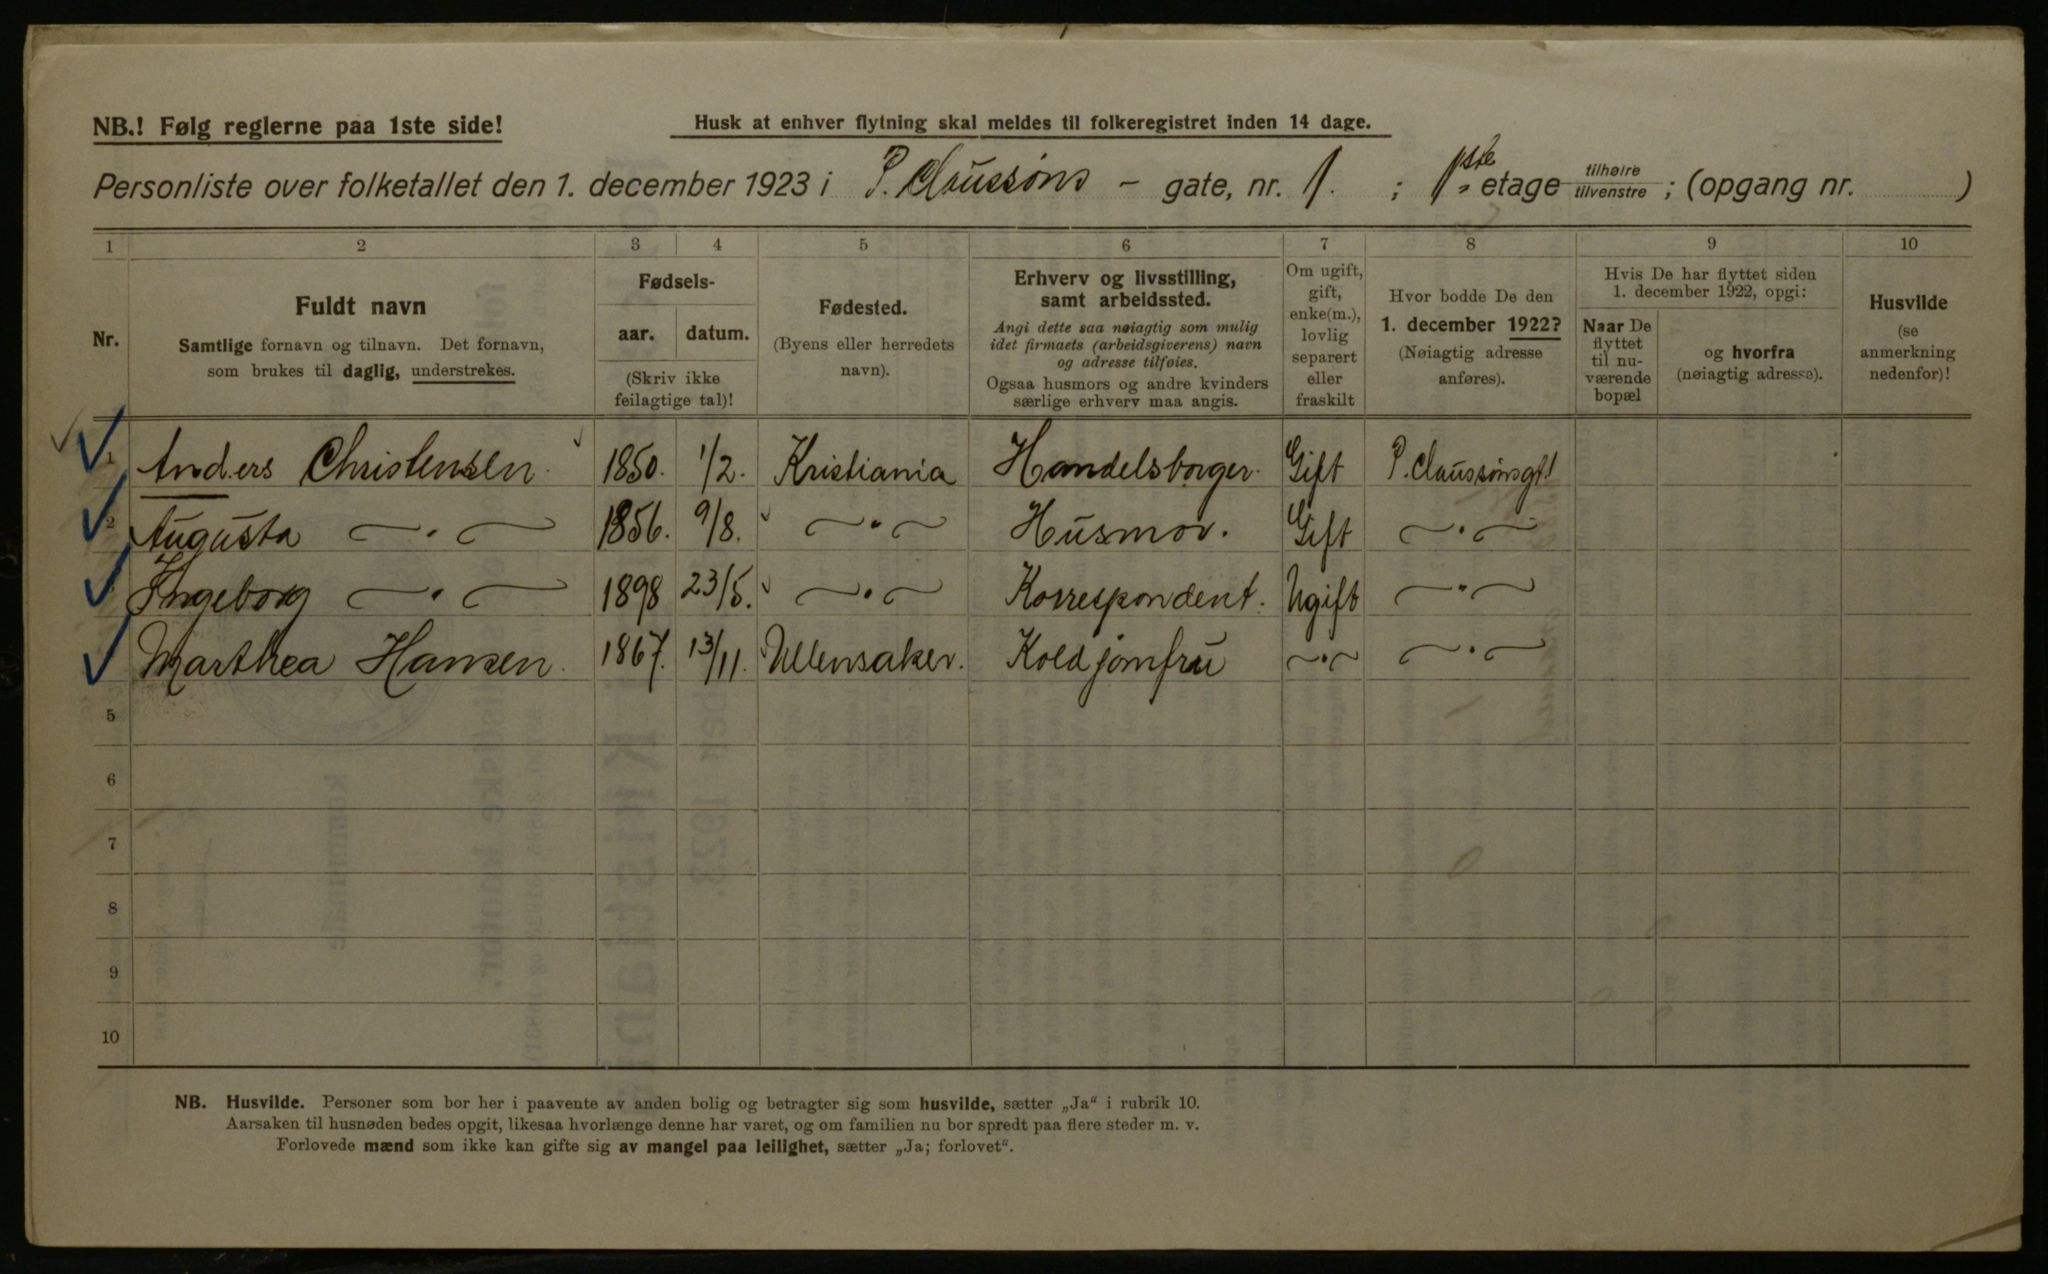 NB.! Følg reglerne paa 1ste side!
Husk at enhver flytning skal meldes til folkeregistret inden 14 dage.
Personliste over folketallet den 1. december 1923 i P. Claussøns - gate, nr. 1. ; 1ste etage tilhøire tilvenstre ; (opgang nr. )
1 2 3 4 5 6 7 8 9 10
Nr.
Fuldt navn
Samtlige fornavn og tilnavn. Det fornavn,
som brukes til daglig, understrekes.
Fødsels-
aar. datum.
(Skriv ikke
feilagtige tal)!
Fødested.
(Byens eller herredets
navn).
Erhverv og livsstilling,
samt arbeidssted.
Angi dette saa nøiagtig som mulig
idet firmaets (arbeidsgiverens) navn
og adresse tilføies.
Ogsaa husmors og andre kvinders
særlige erhverv maa angis.
Om ugift,
gift,
enke(m.),
lovlig
separert
eller
fraskilt
Hvor bodde De den
1. december 1922?
(Nøiagtig adresse
anføres).
Hvis De har flyttet siden
1. december 1922, opgi:
Naar De
flyttet
til nu-
værende
bopæl
og hvorfra
(nøiagtig adresse).
Husvilde
(se
anmerkning
nedenfor)!
1 Anders Christensen. 1850. 1/2. Kristiania Handelsborger. Gift P. Claussønsgt 1
2 Augusta —"— 1856. 9/8. —"— Husmor. Gift —"—
Ingeborg —"— 1898 23/5. —"— Korrespondent. Ugift —"—
Marthea Hansen. 1867. 13/11. Ullensaker. Koldjomfru —"— —"—
5
6
7
8
9
10
NB. Husvilde. Personer som bor her i paavente av anden bolig og betragter sig som husvilde, sætter „Ja“ i rubrik 10.
Aarsaken til husnøden bedes opgit, likesaa hvorlænge denne har varet, og om familien nu bor spredt paa flere steder m. v.
Forlovede mænd som ikke kan gifte sig av mangel paa leilighet, sætter „Ja; forlovet“.